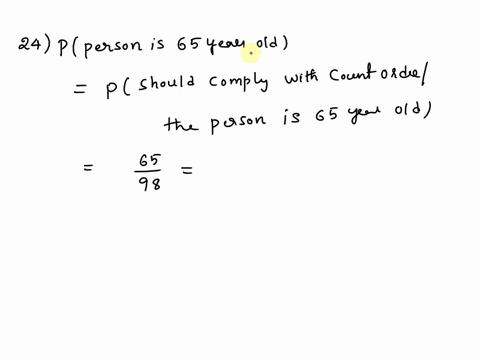 24) P(person is 65 year old)
= P( should comply with Count orde/
the person is 65 year old)
= 65/98 =